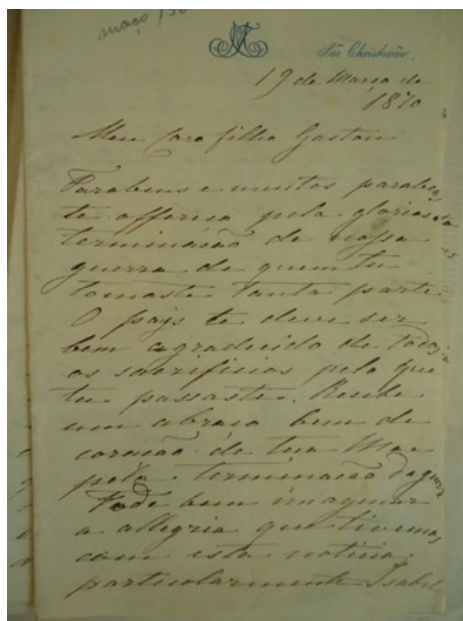 maço
São Christovão.
19 de Março de
1870
Meu Caro filho Gaston
Parabens e muitos parabens
te offereço pela gloriosa
terminação de nossa
guerra de quem tu
tomaste tanta parte.
O pays te deve ser
bem agradecido de todos
os sacrificios pelo que
tu passaste. Recebe
um abraço bem de
coração de tua Mae
pela terminação da guerra
Pode bem imaginar
a allegria que tivemos
com esta noticia,
particularmente Isabel